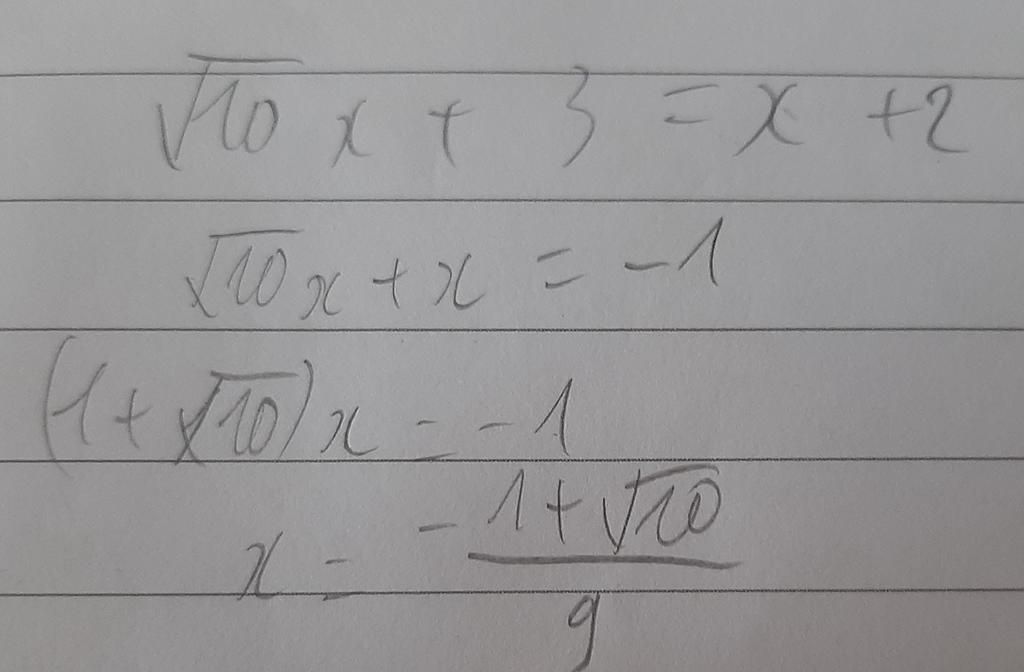 √10 x + 3 = x + 2
√10 x + x = -1
(1 + √10)x = -1
x = - (1 + √10)/9